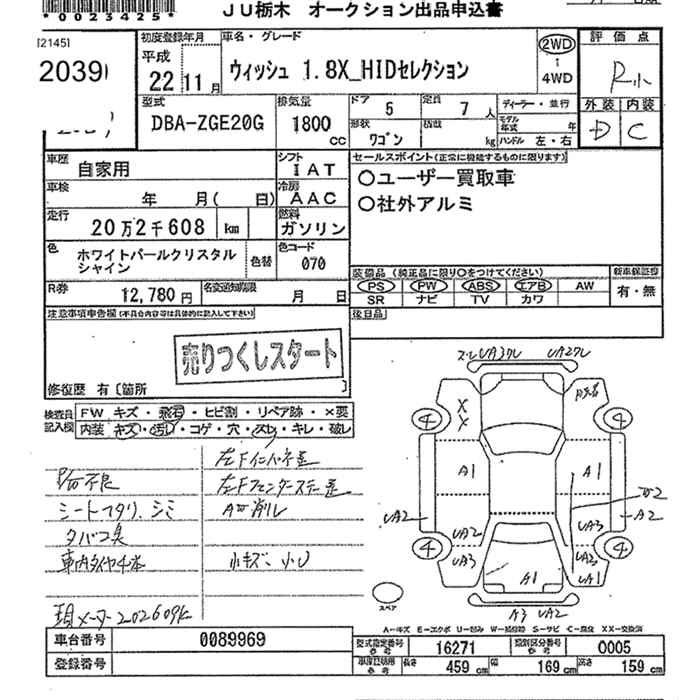 *0023425*
JU栃木 オークション出品申込書
[2145]
2039
初度登録年月
平成
22 11 月
車名・グレード
ウィッシュ 1.8X_HIDセレクション
2WD
4WD
評価点
R小
外装 内装
D C
型式
DBA-ZGE20G
排気量
1800
cc
ドア 5
定員 7 人
形状 ワゴン
積載 kg
ディーラー・並行
モデル年式 年
ハンドル 左・右
車歴 自家用
シフト IAT
車検 年 月( 日)
冷房 AAC
走行 20万2千608 km
燃料 ガソリン
色 ホワイトパールクリスタルシャイン
色替
色コード 070
R券 12,780 円
名変通知期限 月 日
セールスポイント(正常に機能するものに限ります)
○ユーザー買取車
○社外アルミ
装備品(純正品に限り○をつけてください)
PS PW ABS エアB AW
SR ナビ TV カワ
新車保証書
有・無
後日品
注意事項申告欄(不具合内容等は具体的に記入して下さい)
売りつくしスタート
修復歴 有〔箇所 〕
検査員記入欄
FW キズ・飛石・ヒビ割・リペア跡・×要
内装 キズ・汚レ・コゲ・穴・スレ・キレ・破レ
左Fインパネ歪
左Fフェンダーステー歪
シートヘタリ、シミ
A面削レ
タバコ臭
車内タイヤ4本
小キズ、小U
現メーター202609K
UA3クレ UA2クレ
X
X
4 4
A1 A1
UA2 UA2 UA3 A2
4 4
UA3 UA3
A1 UA1
スペア
A3 UA2
A-キズ E-エクボ U-凹み W-補修跡 S-サビ C-腐食 XX-交換済
車台番号 0089969
登録番号
型式指定番号 参考 16271
類別区分番号 参考 0005
車庫証明用 参考 長さ 459 cm 幅 169 cm 高さ 159 cm